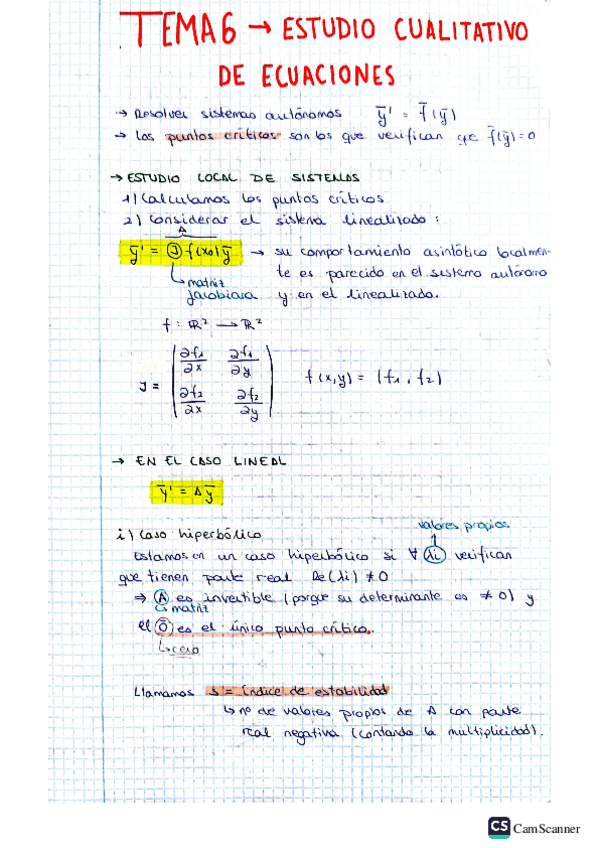 TEMA 6 → ESTUDIO CUALITATIVO
DE ECUACIONES
→ Resolver sistemas autónomos ȳ' = f̄(ȳ)
→ Los puntos críticos son los que verifican que f̄(ȳ)=0
→ ESTUDIO LOCAL DE SISTEMAS
1) Calculamos los puntos críticos
2) Considerar el sistema linealizado:
A
ȳ' = J f(x₀)ȳ → su comportamiento asintótico localmen-
te es parecido en el sistema autónomo
matriz
jacobiana y en el linealizado.
f: ℝ² → ℝ²
J = ( ∂f₁/∂x ∂f₁/∂y
∂f₂/∂x ∂f₂/∂y ) f(x,y) = (f₁, f₂)
→ EN EL CASO LINEAL
ȳ' = Aȳ
valores propios
i) Caso hiperbólico
Estamos en un caso hiperbólico si ∀ λi verifican
que tienen parte real Re(λi) ≠ 0
⇒ A es invertible (porque su determinante es ≠ 0) y
↳ matriz
el 0̄ es el único punto crítico.
↳ cero
Llamamos s = índice de estabilidad
↳ nº de valores propios de A con parte
real negativa (contando la multiplicidad).
CS CamScanner